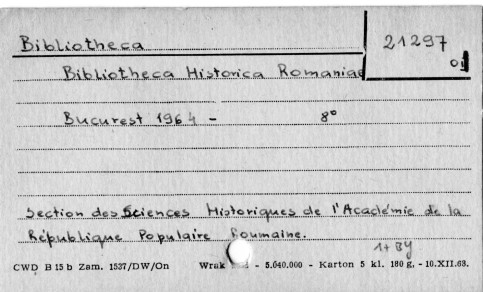 Bibliotheca 21297
Bibliotheca Historica Romaniae
Bucurest 1964 - 8°
Section des Sciences Historiques de l'Académie de la
République Populaire Roumaine.
1+BY
CWD B 15 b Zam. 1537/DW/On Wrak - 5.040.000 - Karton 5 kl. 180 g. - 10.XII.63.